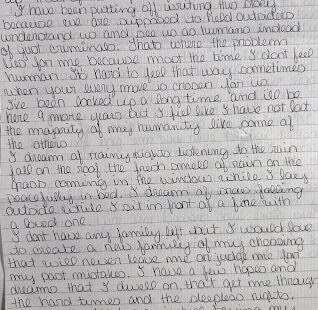 I have been putting off writing this story
because we are supposed to help outsiders
understand us and see us as humans instead
of just criminals. Thats where the problem
lies for me because most the time I dont feel
human. Its hard to feel that way sometimes
when your every move is chosen for us.
I've been locked up a long time and ill be
here 9 more years but I feel like I have not lost
the majority of my humanity like some of
the others.
I dream of rainy nights listening to the rain
fall on the roof, the fresh smell of rain on the
grass coming in the window while I lay
peacefully in bed. I dream of snow falling
outside while I sit in front of a fire with
a loved one.
I dont have any family left but I would love
to create a new family of my choosing
that will never leave me or judge me for
my past mistakes. I have a few hopes and
dreams that I dwell on, that get me through
the hard times and the sleepless nights.